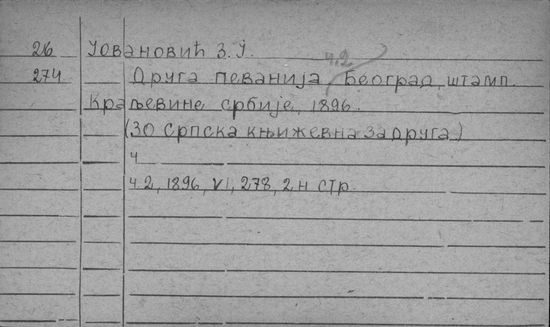 26 Јовановић З. Ј.
ч.2
274 Друга певанија Београд, штамп.
Краљевине србије, 1896.
(30 Српска књижевна задруга)
ч
ч.2, 1896, VI, 278, 2 н стр.